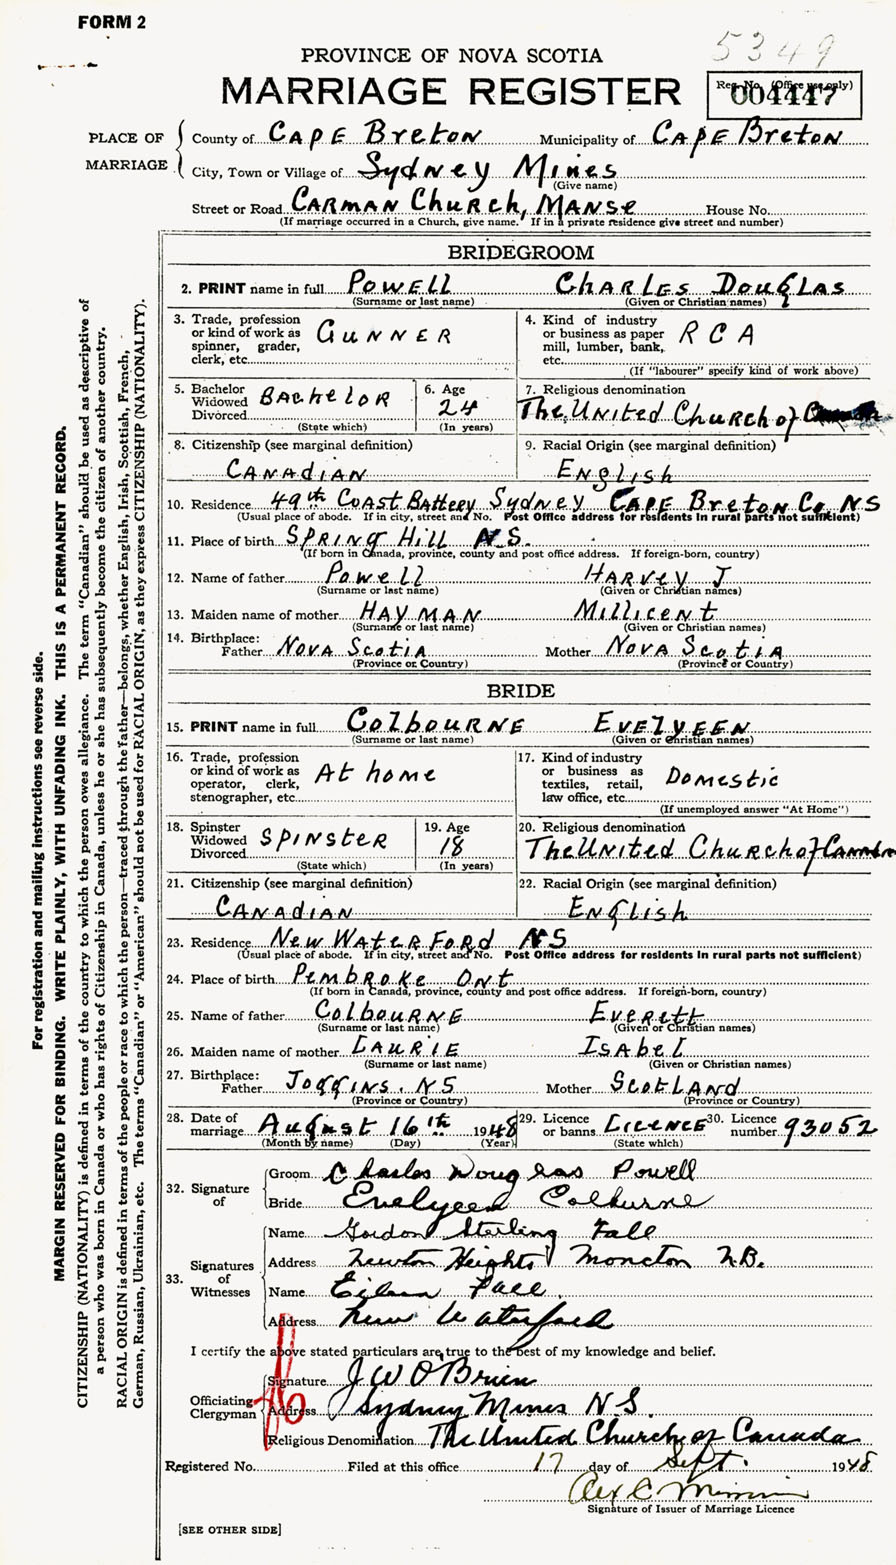 FORM 2
5349
PROVINCE OF NOVA SCOTIA
MARRIAGE REGISTER
Reg. No. (Office use only)
004447
PLACE OF MARRIAGE
County of CAPE Breton Municipality of CAPE Breton
City, Town or Village of Sydney Mines
(Give name)
Street or Road CARMAN Church, MANSE House No.
(If marriage occurred in a Church, give name. If in a private residence give street and number)
BRIDEGROOM
2. PRINT name in full Powell Charles Douglas
(Surname or last name) (Given or Christian names)
3. Trade, profession or kind of work as spinner, grader, clerk, etc. GUNNER
4. Kind of industry or business as paper mill, lumber, bank, etc. RCA
(If "labourer" specify kind of work above)
5. Bachelor Widowed Divorced BACHELOR
(State which)
6. Age 24
(In years)
7. Religious denomination
The United Church of
8. Citizenship (see marginal definition)
CANADIAN
9. Racial Origin (see marginal definition)
English
10. Residence 49th Coast Battery Sydney CAPE Breton Co NS
(Usual place of abode. If in city, street and No. Post Office address for residents in rural parts not sufficient)
11. Place of birth SPRING Hill N.S.
(If born in Canada, province, county and post office address. If foreign-born, country)
12. Name of father Powell HARVEY J
(Surname or last name) (Given or Christian names)
13. Maiden name of mother HAYMAN Millicent
(Surname or last name) (Given or Christian names)
14. Birthplace:
Father NOVA Scotia Mother NOVA Scotia
(Province or Country) (Province or Country)
BRIDE
15. PRINT name in full COLBOURNE EVELYEEN
(Surname or last name) (Given or Christian names)
16. Trade, profession or kind of work as operator, clerk, stenographer, etc. At home
17. Kind of industry or business as textiles, retail, law office, etc. Domestic
(If unemployed answer "At Home")
18. Spinster Widowed Divorced SPINSTER
(State which)
19. Age 18
(In years)
20. Religious denomination
The United Church of Canada
21. Citizenship (see marginal definition)
CANADIAN
22. Racial Origin (see marginal definition)
English
23. Residence New WATERFORD NS
(Usual place of abode. If in city, street and No. Post Office address for residents in rural parts not sufficient)
24. Place of birth Pembroke Ont
(If born in Canada, province, county and post office address. If foreign-born, country)
25. Name of father COLBOURNE Everett
(Surname or last name) (Given or Christian names)
26. Maiden name of mother LAURIE ISABEL
(Surname or last name) (Given or Christian names)
27. Birthplace:
Father JOGGINS. NS Mother SCOTLAND
(Province or Country) (Province or Country)
28. Date of marriage August 16th 1948
(Month by name) (Day) (Year)
29. Licence or banns LICENCE
(State which)
30. Licence number 93052
32. Signature of
Groom Charles Douglas Powell
Bride Evelyeen Colburne
33. Signatures of Witnesses
Name Gordon Sterling Fall
Address Newton Heights Moncton N.B.
Name Eileen Fall.
Address New Waterford
I certify the above stated particulars are true to the best of my knowledge and belief.
Officiating Clergyman
Signature J W O'Brien
Address Sydney Mines N.S.
Religious Denomination The United Church of Canada
Registered No. Filed at this office 17 day of Sept. 1948
Signature of Issuer of Marriage Licence
[SEE OTHER SIDE]
For registration and mailing instructions see reverse side.
MARGIN RESERVED FOR BINDING. WRITE PLAINLY, WITH UNFADING INK. THIS IS A PERMANENT RECORD.
CITIZENSHIP (NATIONALITY) is defined in terms of the country to which the person owes allegiance. The term "Canadian" should be used as descriptive of
a person who was born in Canada or who has rights of Citizenship in Canada, unless he or she has subsequently become the citizen of another country.
RACIAL ORIGIN is defined in terms of the people or race to which the person—traced through the father—belongs, whether English, Irish, Scottish, French,
German, Russian, Ukrainian, etc. The terms "Canadian" or "American" should not be used for RACIAL ORIGIN, as they express CITIZENSHIP (NATIONALITY).